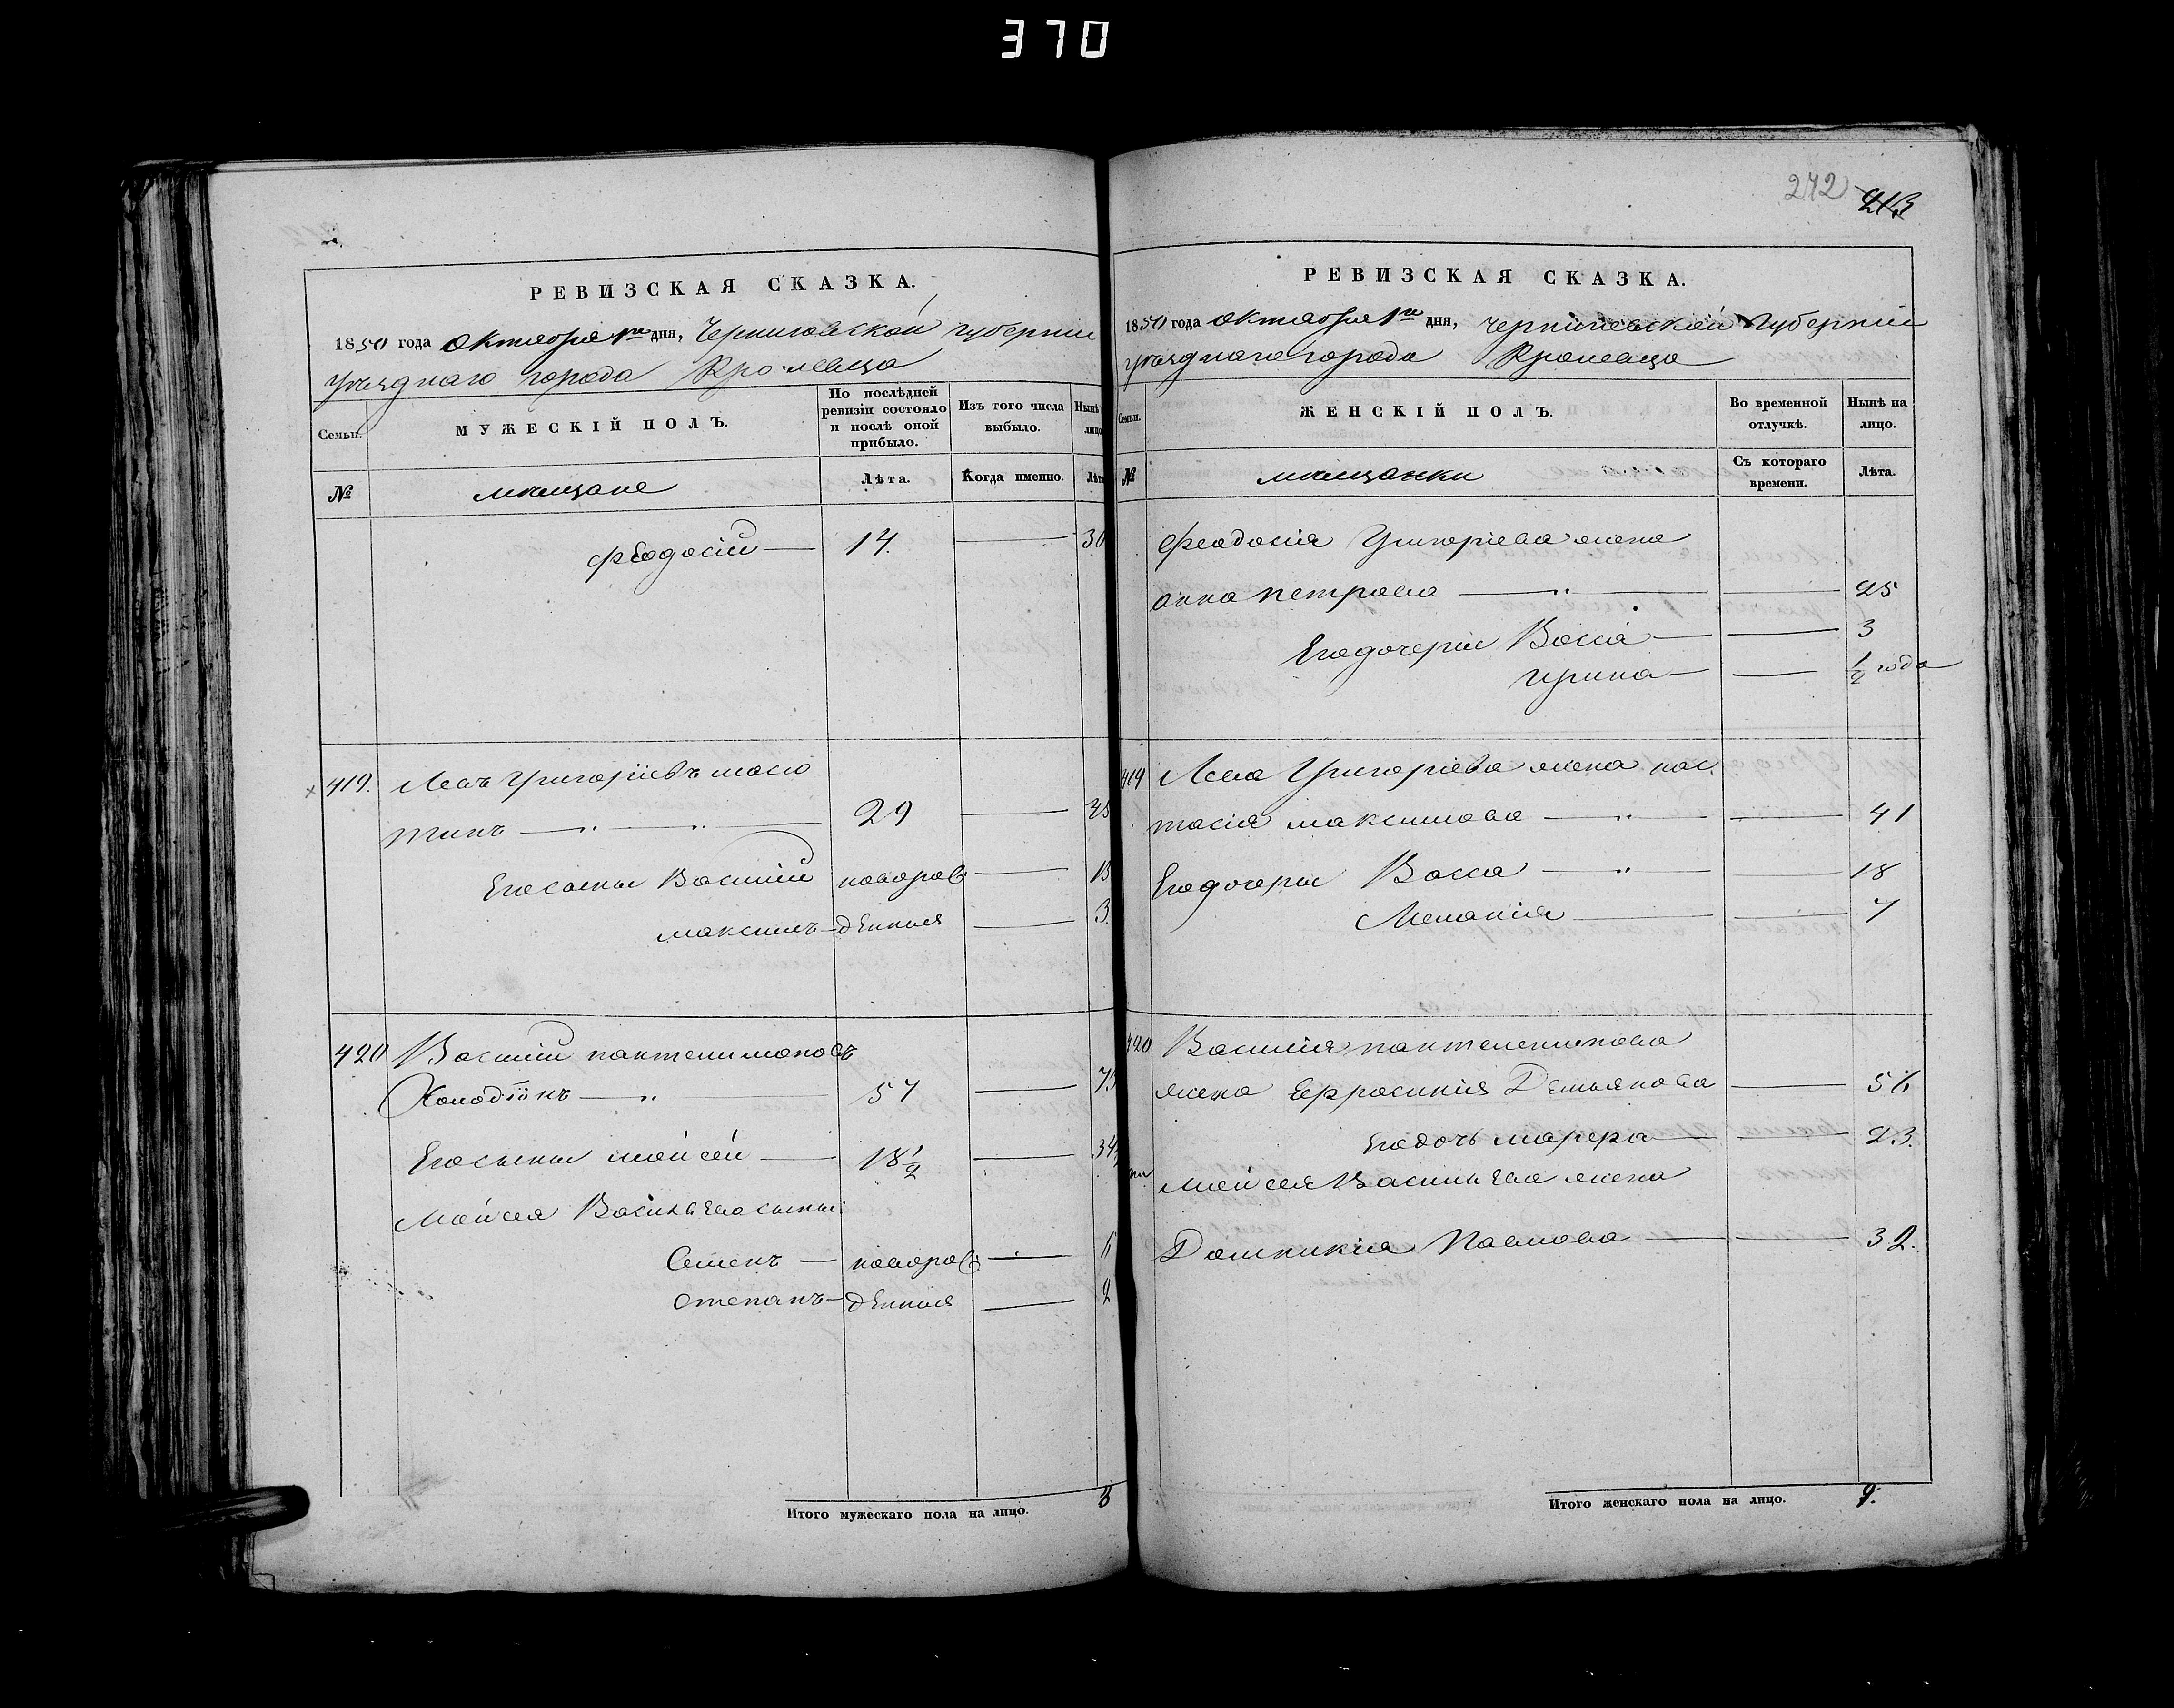 370
242 213
РЕВИЗСКАЯ СКАЗКА.
1850 года октября 1го дня, Черниговской губернии
уѣзднаго города Кролевца
Семьи.
МУЖЕСКІЙ ПОЛЪ.
По послѣдней ревизіи состояло и послѣ оной прибыло.
Изъ того числа выбыло.
Нынѣ лицо
№
мѣщане
Лѣта.
Когда именно.
Лѣта
Феодосій — 14. — 30
419. Левъ Григоріевъ
29 — 45
Его сыны Василій новорож — 13
Максимъ — денныя — 3
420 Василій Пантелимоновъ
Холодіонъ — 57 — 73
Его сынъ Мойсей — 18 1/2 — 34
Мойсея Васильева сыны
Семенъ — новорож — 6
Степанъ — денныя — 2
Итого мужескаго пола на лицо. 8
РЕВИЗСКАЯ СКАЗКА.
1850 года октября 1го дня, Черниговской губерніи
уѣзднаго города Кролевца
Семьи.
ЖЕНСКІЙ ПОЛЪ.
Во временной отлучкѣ.
Нынѣ на лицо.
№
мѣщанки
Съ котораго времени.
Лѣта.
Феодосія Григоріева жена
Анна Петрова — — 25
Его дочери Васса — — 3
Ирина — — 1/2 года
419 Лева Григоріева жена Нас
тасія Максимова — — 41
Его дочери Васса — — 18
Меланія — — 7
420 Василія Пантелеимонова
жена Евфросинія Демьянова — 56
Его дочь Марфа — — 23.
Мойсея Васильева жена
Домникія Павлова — — 32.
Итого женскаго пола на лицо. 9.